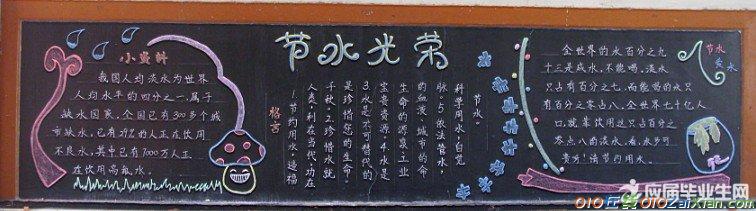 节水光荣
小资料
我国人均淡水为世界
人均水平的四分之一,属于
缺水国家,全国已有300多个城
市缺水,已有29%的人正在饮用
不良水,其中已有7000万人正
在饮用高氟水.
格言
1.节约用水,造福
人类,利在当代,功在
千秋。2.珍惜水就
是珍惜您的生命。
3.水是不可替代的
宝贵资源。4.水是
生命的源泉,工业
的血液,城市的命
脉。5.依法管水,
科学用水,自觉
节水。
全世界的水百分之九
十三是咸水,不能喝。淡水
只占有百分之七,而能喝的水只
有百分之零点八。全世界七十亿人
口,就靠饮用这只占百分之
零点八的淡水。看,水多可
贵呀!请节约用水。
节水
爱水
应届毕业生网
010在线 010ZaiXian.com